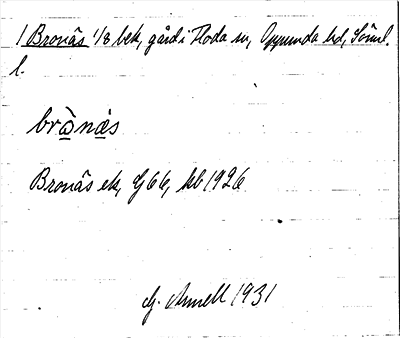 1 Bronäs 1/8 bek, gård i Floda sn, Oppunda hd, Söml.
l.
brò̲næ̲s
Bronäs ek, G 66, kb 1926
G. Amell 1931